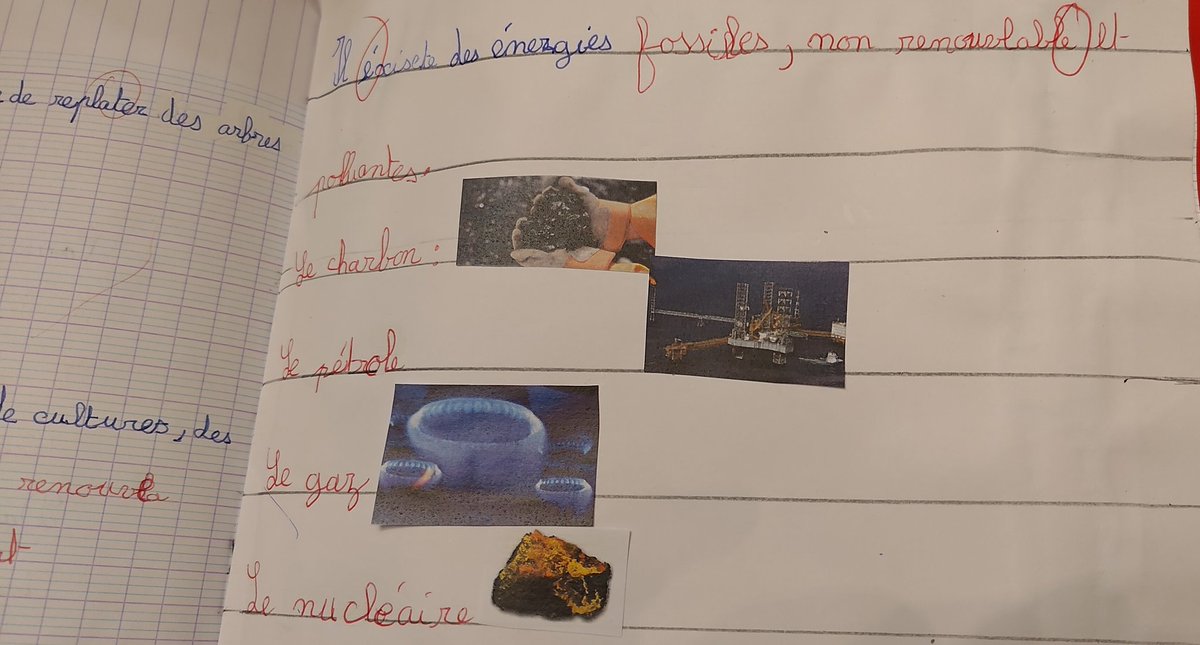 de replater des arbres
le cultures, des
renouvela
et
Il éxisete des énergies fossiles, non renouvelablé et
polluantes.
Le charbon :
Le pétrole
Le gaz
Le nucléaire